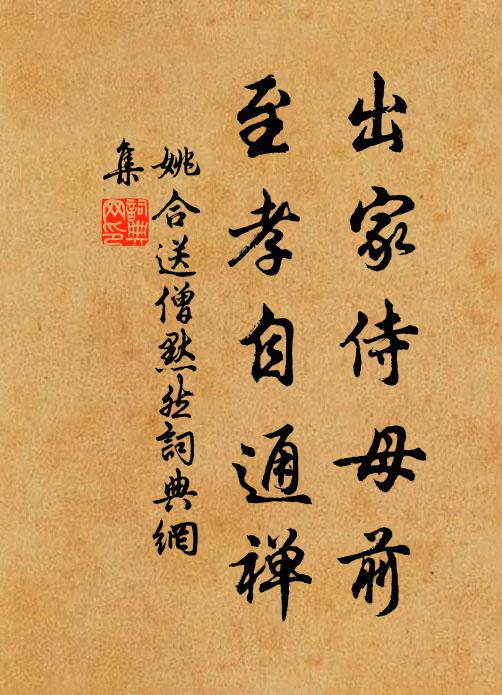 出家侍母前
至孝自通禅
姚合送僧默然詞典網
集
詞典网印